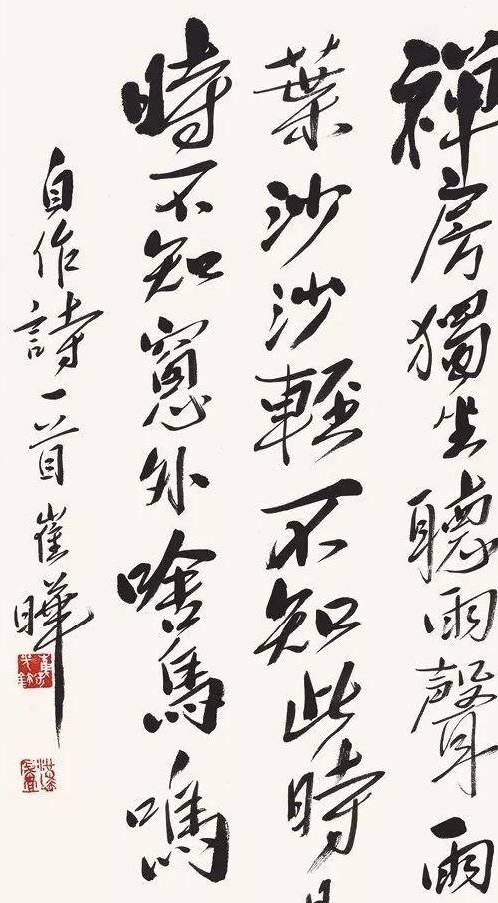 禅房獨坐聽雨聲雨
葉沙沙輕不知此時
時不知窻外啥鳥鳴
自作詩一首崔曄